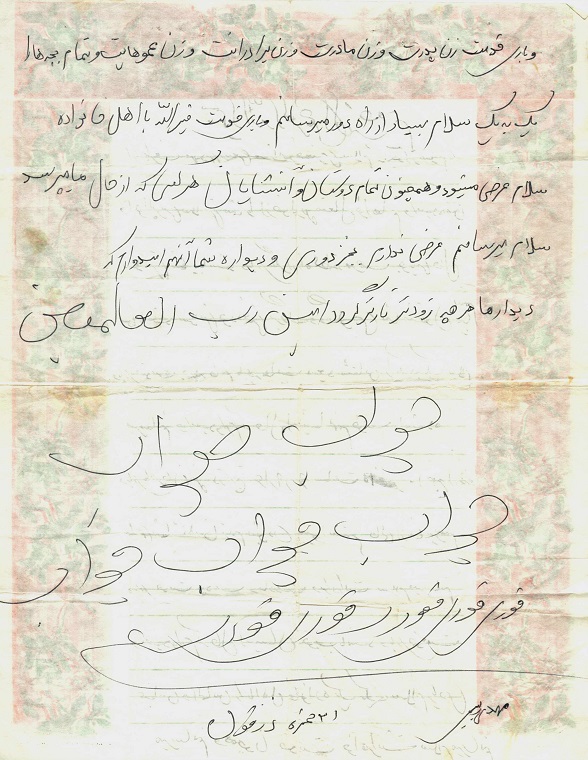 و باری قومت زن پدرت و زن مادرت و زن برادرانت و زن عموهایت و تمام بچه ها را
یک به یک سلام بسیار از راه دور میرسانم و باری قومت خیرالله با اهل خانواده
سلام عرض میشود و همچنون تمام دوستان و آشنایان هرکس که از حال ما میپرسد
سلام میرسانم عرضی ندارم بغیر دوری و دیواره شما آنهم امیدوارم که
دیدار ما هرچه زودتر تازتر گردد امین رب العالمین
جواب جواب
جواب جواب جواب
فوری فوری فوری فوری فوری
۲۱ حمزه دزفول